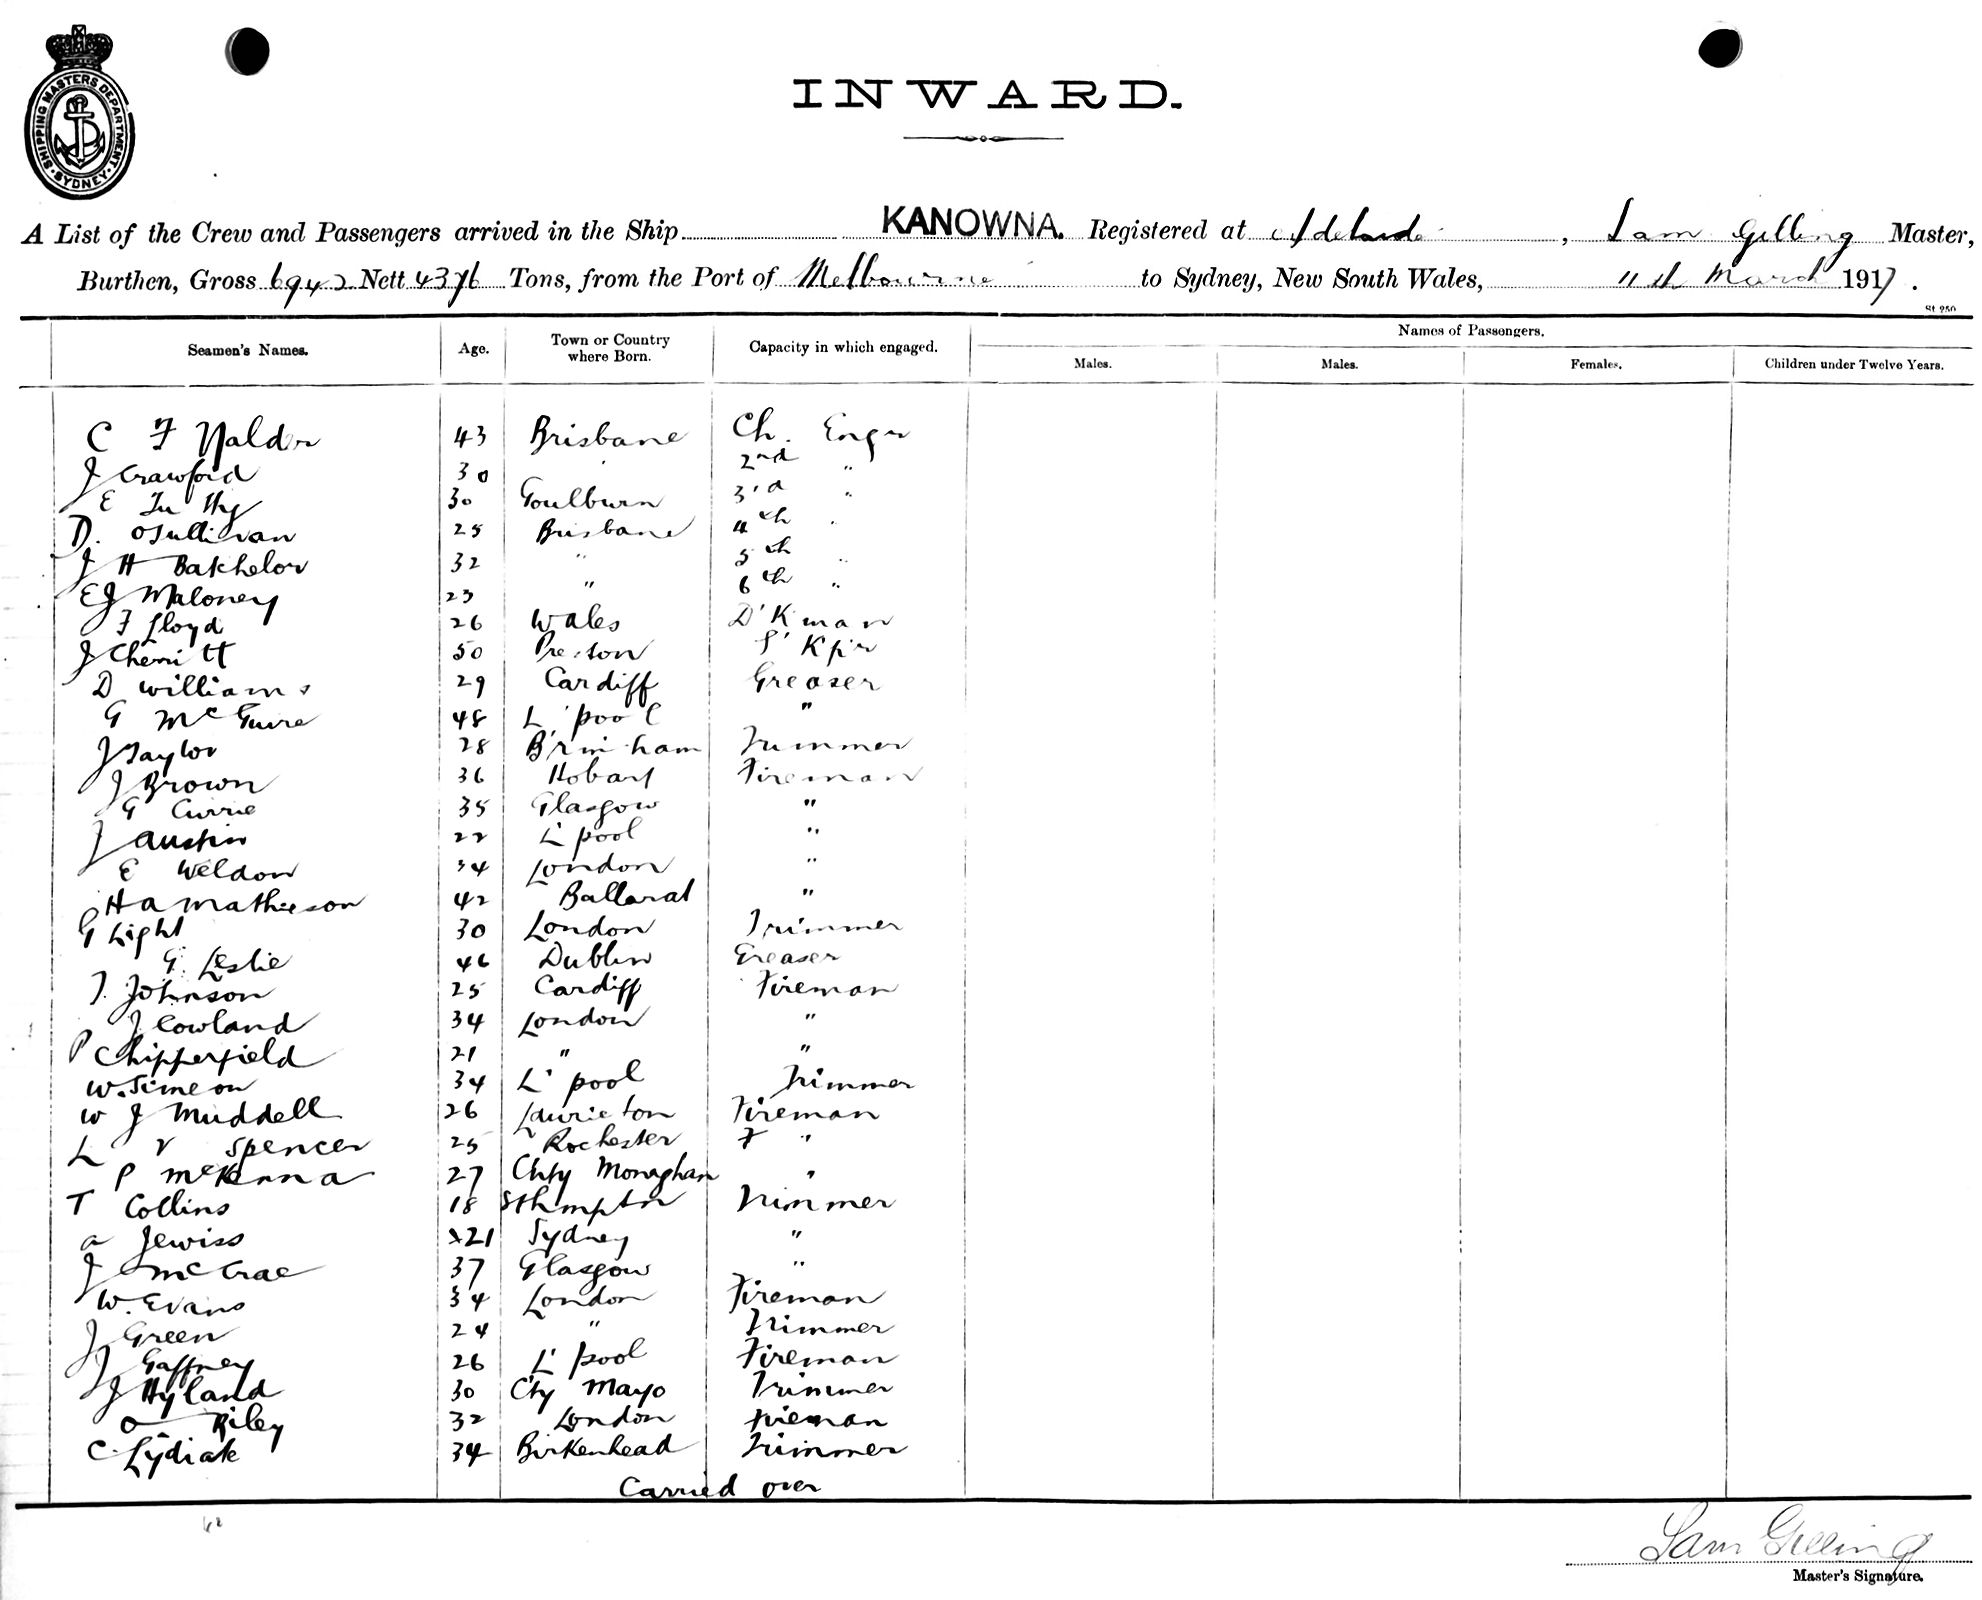 SHIPPING MASTERS DEPARTMENT · SYDNEY ·
INWARD.
A List of the Crew and Passengers arrived in the Ship KANOWNA. Registered at Adelaide, Sam Gelling Master,
Burthen, Gross 6942 Nett 4376 Tons, from the Port of Melbourne to Sydney, New South Wales, 11th March 1917.
St 250
Seamen's Names. Age. Town or Country where Born. Capacity in which engaged. Names of Passengers.
Males. Males. Females. Children under Twelve Years.
C F Nalder 43 Brisbane Ch. Engr
J Crawford 30 " 2nd "
E 30 Goulburn 3rd "
D. OSullivan 25 Brisbane 4th "
J H Batchelor 32 " 5th "
EJ Maloney 23 " 6th "
F Lloyd 26 Wales D'Kman
J 50 Preston S'Kp'r
D Williams 29 Cardiff Greaser
G McGuire 48 L'pool "
J Taylor 28 B'rmingham Trimmer
J Brown 36 Hobart Fireman
G Currie 35 Glasgow "
J Austin 22 L'pool "
E Weldon 34 London "
H a Mathieson 42 Ballarat "
G Light 30 London Trimmer
G. Leslie 46 Dublin Greaser
J. Johnson 25 Cardiff Fireman
J Cowland 34 London "
P Chipperfield 21 " "
W. Simeon 34 L'pool Trimmer
W J Muddell 26 Laurieton Fireman
L V Spencer 25 Rochester F "
P McKenna 27 Cnty Monaghan "
T Collins 18 Sthmpton Trimmer
a Jewiss 21 Sydney "
J McCrae 37 Glasgow "
W. Evans 34 London Fireman
J Green 24 " Trimmer
J Gaffney 26 L'pool Fireman
J Hyland 30 Cty Mayo Trimmer
a Riley 32 London Fireman
C. Lydiate 34 Birkenhead Trimmer
Carried over
Sam Gelling
Master's Signature.